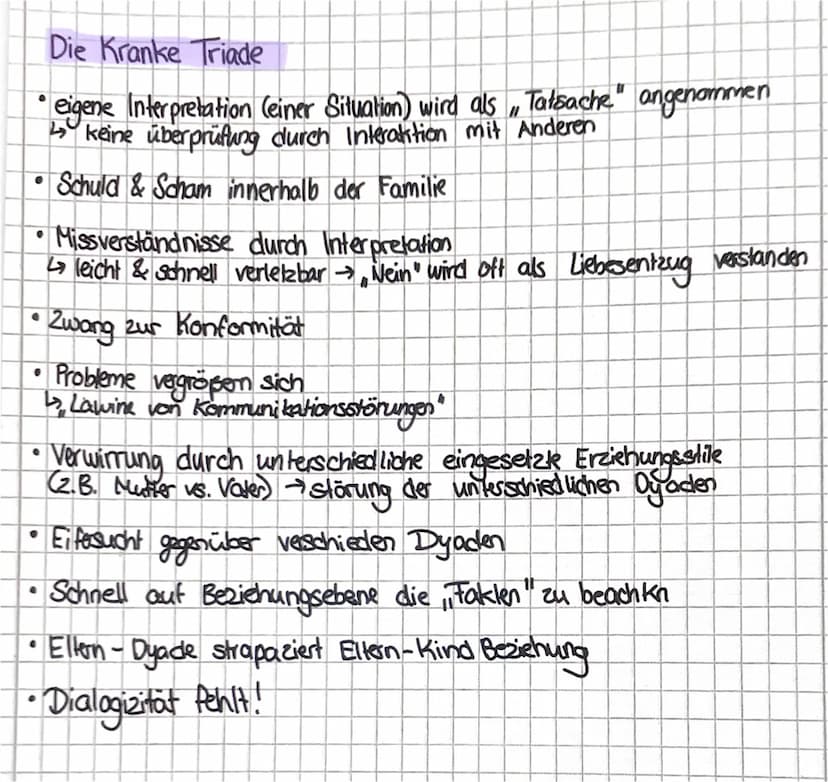 Die Kranke Triade
• eigene Interpretation (einer Situation) wird als „Tatsache" angenommen
↳ keine überprüfung durch Interaktion mit Anderen
• Schuld & Scham innerhalb der Familie
• Missverständnisse durch Interpretation
↳ leicht & schnell verletzbar → „Nein" wird oft als Liebesentzug verstanden
• Zwang zur Konformität
• Probleme vergrößern sich
↳ „Lawine von Kommunikationsstörungen"
• Verwirrung durch unterschiedliche eingesetzte Erziehungsstile
(z.B. Mutter vs. Vater) → störung der unterschiedlichen Dyaden
• Eifesucht gegenüber veschieden Dyaden
• Schnell auf Beziehungsebene die „Fakten" zu beachten
• Eltern-Dyade strapaziert Eltern-Kind Beziehung
• Dialogizität fehlt!